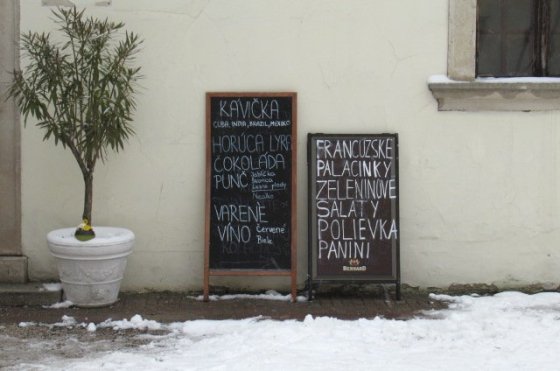 KAVIČKA
CUBA, INDIA, BRAZIL, MEXIKO
HORÚCA LYRA
ČOKOLÁDA
PUNČ Jablčko
Lesné plody
Nealko
VARENÉ
VÍNO Červené
Biele
FRANCÚZSKE
PALACINKY
ZELENINOVÉ
ŠALÁTY
POLIEVKA
PANINI
BERNARD